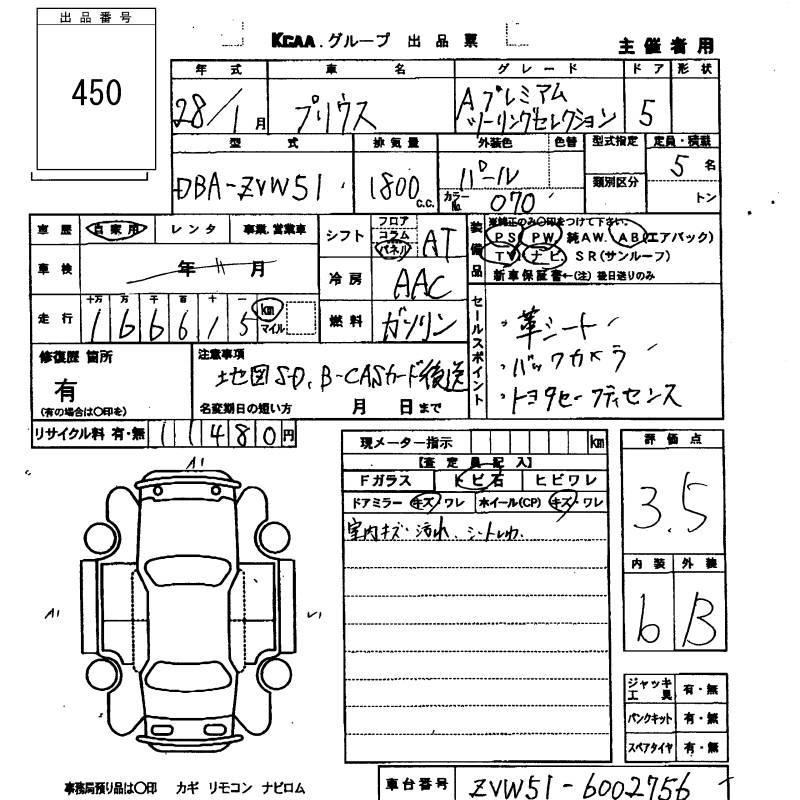 出品番号
450
KCAA.グループ 出品票
主催者用
年式 車名 グレード ドア 形状
28/1月 プリウス Aプレミアム ツーリングセレクション 5
型式 排気量 外装色 色替 型式指定 定員・積載
DBA-ZVW51 1800c.c. パール 5名
カラーNo. 070 類別区分 トン
車歴 自家用 レンタ 事業.営業車
シフト フロア コラム パネル AT
装備品 ※純正のみ○印をつけて下さい。
PS PW. 純AW. AB(エアバック)
TV. ナビ. SR(サンルーフ)
新車保証書←(注) 後日送りのみ
車検 年 11月
冷房 AAC
走行 十万 万 千 百 十 一
166615 km マイル
燃料 ガソリン
セールスポイント
・革シート
・バックカメラ
・トヨタセーフティセンス
修復歴 箇所
有
(有の場合は○印を)
注意事項
地図SD、B-CASカード後送
名変期日の短い方 月 日まで
リサイクル料 有・無 11480円
現メーター指示 km
【査定員記入】
Fガラス トビ石 ヒビワレ
ドアミラー キズ・ワレ ホイール(CP) キズ・ワレ
室内キズ・汚れ、シートしわ、
評価点
3.5
内装 外装
b B
A1
A1
ジャッキ工具 有・無
パンクキット 有・無
スペアタイヤ 有・無
事務局預り品は○印 カギ リモコン ナビロム
車台番号 ZVW51-6002756